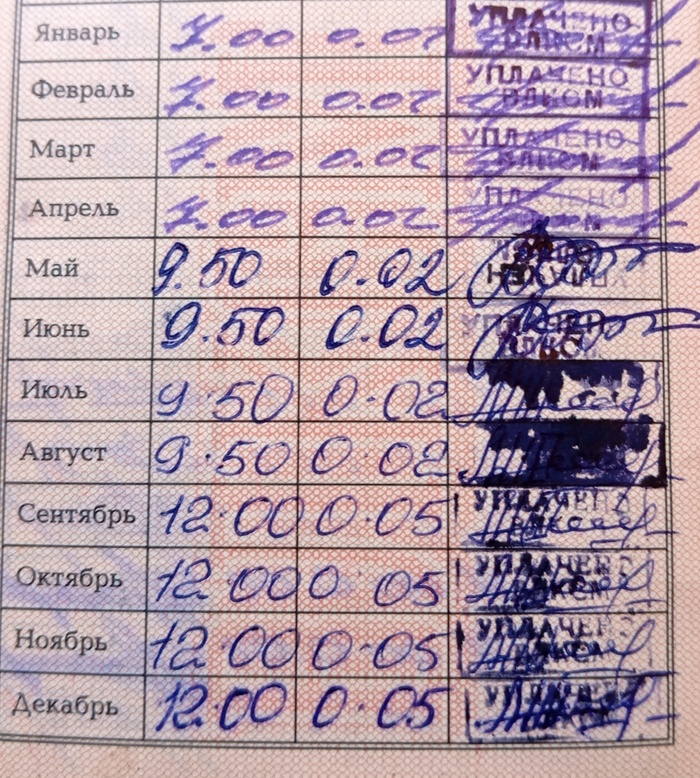 Январь 7.00 0.02 УПЛАЧЕНО
ВЛКСМ
Февраль 7.00 0.02 УПЛАЧЕНО
ВЛКСМ
Март 7.00 0.02 УПЛАЧЕНО
ВЛКСМ
Апрель 7.00 0.02 УПЛАЧЕНО
ВЛКСМ
Май 9.50 0.02
Июнь 9.50 0.02
Июль 9.50 0.02
Август 9.50 0.02
Сентябрь 12.00 0.05 УПЛАЧЕНО
Октябрь 12.00 0.05 УПЛАЧЕНО
Ноябрь 12.00 0.05 УПЛАЧЕНО
Декабрь 12.00 0.05